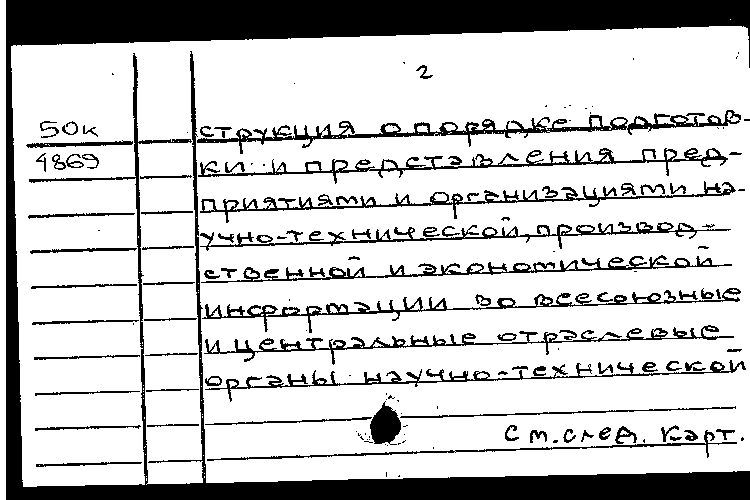 2
50к
4869
струкция о порядке подготов-
ки и представления пред-
приятиями и организациями на-
учно-технической, производ-
ственной и экономической
информации во всесоюзные
и центральные отраслевые
органы научно-технической
См. след. карт.